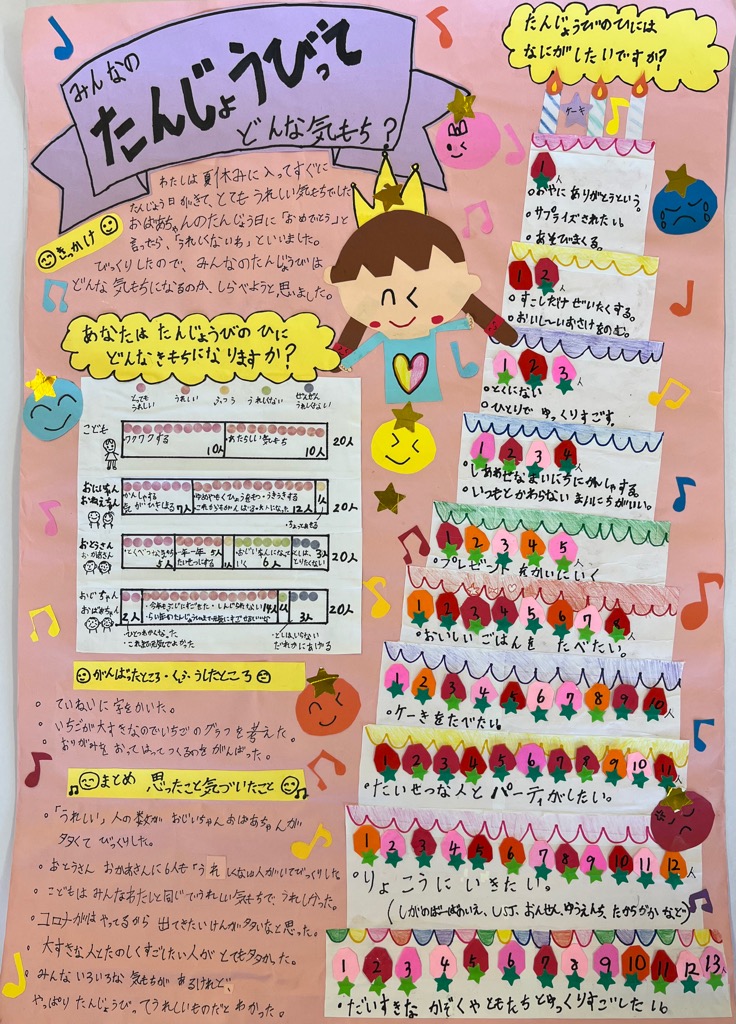 みんなの
たんじょうびって
どんな気もち?
わたしは夏休みに入ってすぐに
たんじょう日がきて、とてもうれしい気もちでした。
おばあちゃんのたんじょう日に「おめでとう」と
言ったら、「うれしくないわ」といいました。
びっくりしたので、みんなのたんじょうびは
どんな気もちになるのか、しらべようと思いました。
きっかけ
あなたはたんじょうびのひに
どんなきもちになりますか?
とても
うれしい
うれしい
ふつう
うれしくない
ぜんぜん
うれしくない
こども
ワクワクする
10人
あたらしい気もち
10人
20人
おにいちゃん
おねえちゃん
かんしゃする
気がひきしまる
7人
12人
1人
20人
おとうさん
おかあさん
とくべつな気もち
5人
一年一年
たいせつにする
5人
6人
3人
とりたくない
20人
おじいちゃん
おばあちゃん
2人
3人
20人
だれかにあげる
がんばったところ・くふうしたところ
・ていねいに字をかいた。
・いちごが大すきなのでいちごのグラフを考えた。
・おりがみをおってはってつくるのをがんばった。
まとめ 思ったこと気づいたこと
・「うれしい」人の数がおじいちゃんおばあちゃんが
多くてびっくりした。
・おとうさんおかあさんに6人も「うれしくない」人がいてびっくりした
・こどもはみんなわたしと同じでうれしい気もちで、うれしかった。
・コロナがはやってるから出てきたいけんが多いなと思った。
・大すきな人とたのしくすごしたい人がとても多かった。
・みんないろいろな気もちがあるけれど、
やっぱりたんじょうびってうれしいものだとわかった。
たんじょうびのひには
なにがしたいですか?
ケーキ
1人
・おやにありがとうという。
・サプライズされたい。
・あそびまくる。
1 2人
・すこしだけぜいたくする。
・おいし〜いおさけをのむ。
1 2 3人
・とくにない
・ひとりでゆっくりすごす。
1 2 3 4人
・しあわせなまいにちにかんしゃする。
・いつもとかわらないまいにちがいい。
1 2 3 4 5人
・プレゼントをかいにいく
1 2 3 4 5 6 7 8人
・おいしいごはんをたべたい。
1 2 3 4 5 6 7 8 9 10人
・ケーキをたべたい。
1 2 3 4 5 6 7 8 9 10 11人
・たいせつな人とパーティがしたい。
1 2 3 4 5 6 7 8 9 10 11 12人
・りょこうにいきたい。
(しがめばーばあいえ、USJ、おんせん、ゆうえんち、たからづかなど)
1 2 3 4 5 6 7 8 9 10 11 12 13人
・だいすきなかぞくやともだちとゆっくりすごしたい。